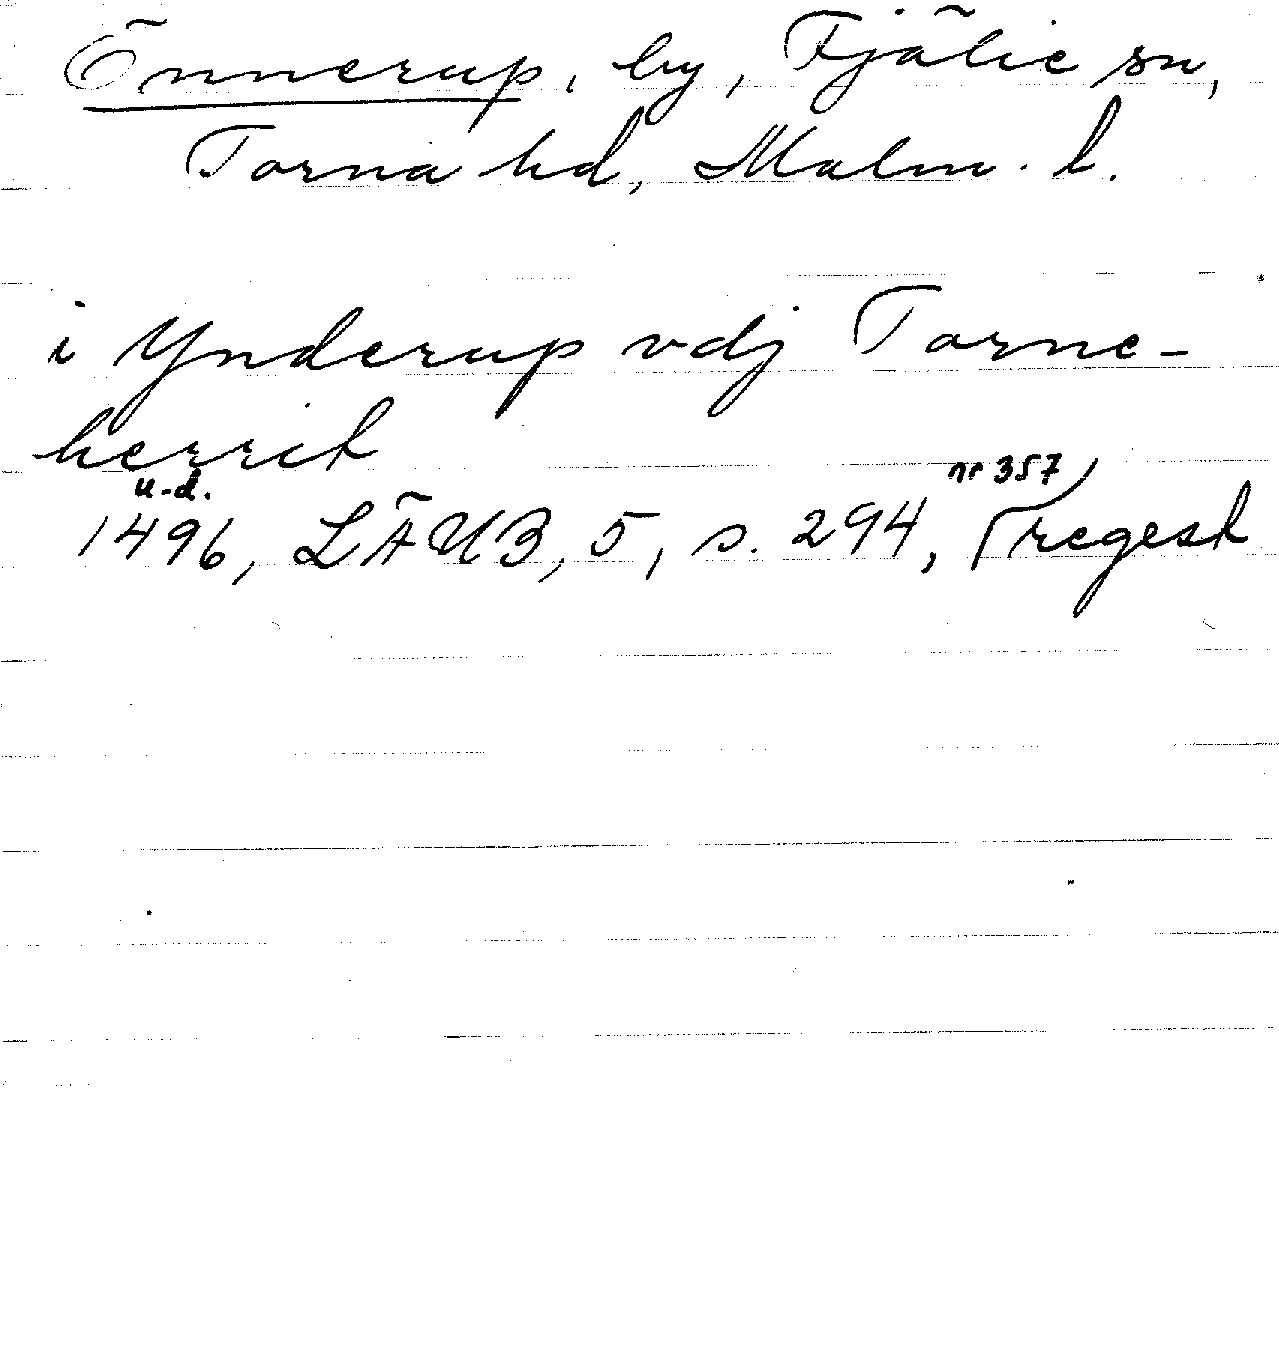 Önnerup, by, Fjälie sn,
Torna hd, Malm. l.
i Ynderup vdj Torne-
herrit
u.d.
1496, LÄUB, 5, s. 294, nr 357, regest